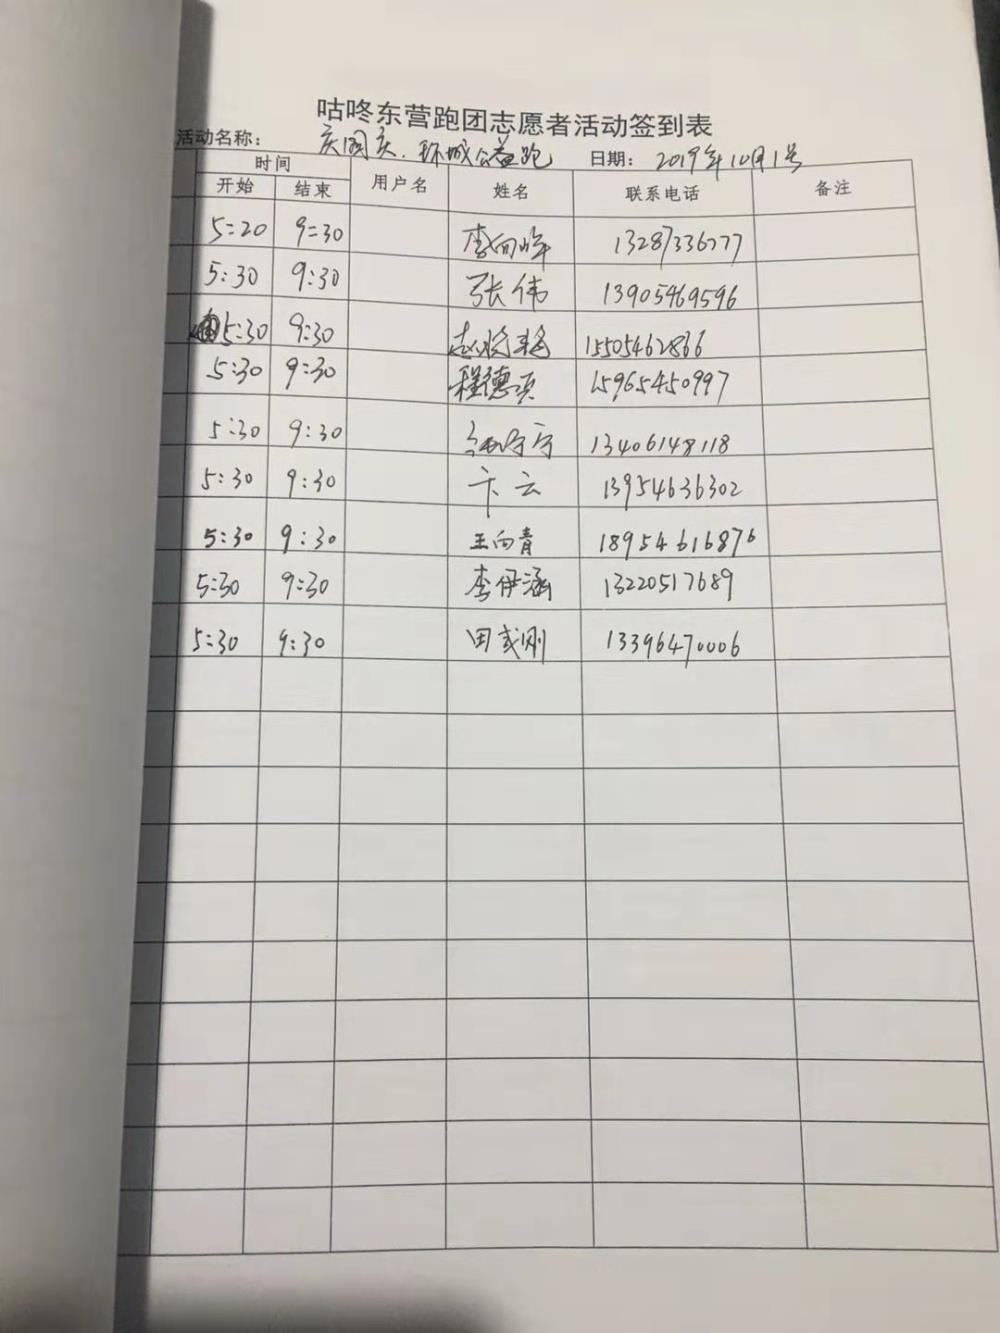 咕咚东营跑团志愿者活动签到表
活动名称： 庆国庆.环城公益跑 日期： 2019年10月1号
时间 用户名 姓名 联系电话 备注
开始 结束
5:20 9:30 李向 13287336777
5:30 9:30 张伟 13905469596
5:30 9:30 赵 15505462866
5:30 9:30 程德 15965450997
5:30 9:30 13406148118
5:30 9:30 卞云 13954636302
5:30 9:30 王向青 18954616876
5:30 9:30 李伊涵 13220517689
5:30 9:30 田成刚 13396470006